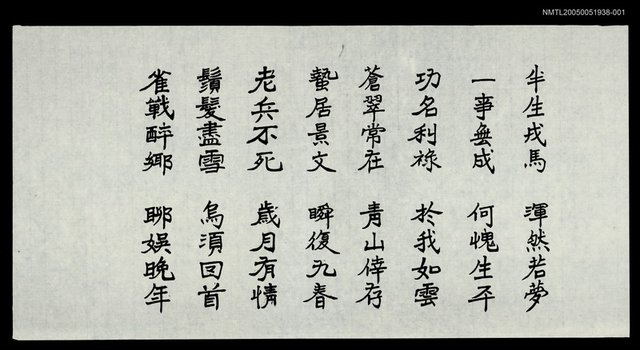 NMTL20050051938-001
半生戎馬 渾然若夢
一事無成 何愧生平
功名利祿 於我如雲
蒼翠常在 青山倖存
蟄居景文 瞬復九春
老兵不死 歲月有情
鬚髮盡雪 烏須回首
雀戰醉鄉 聊娛晚年